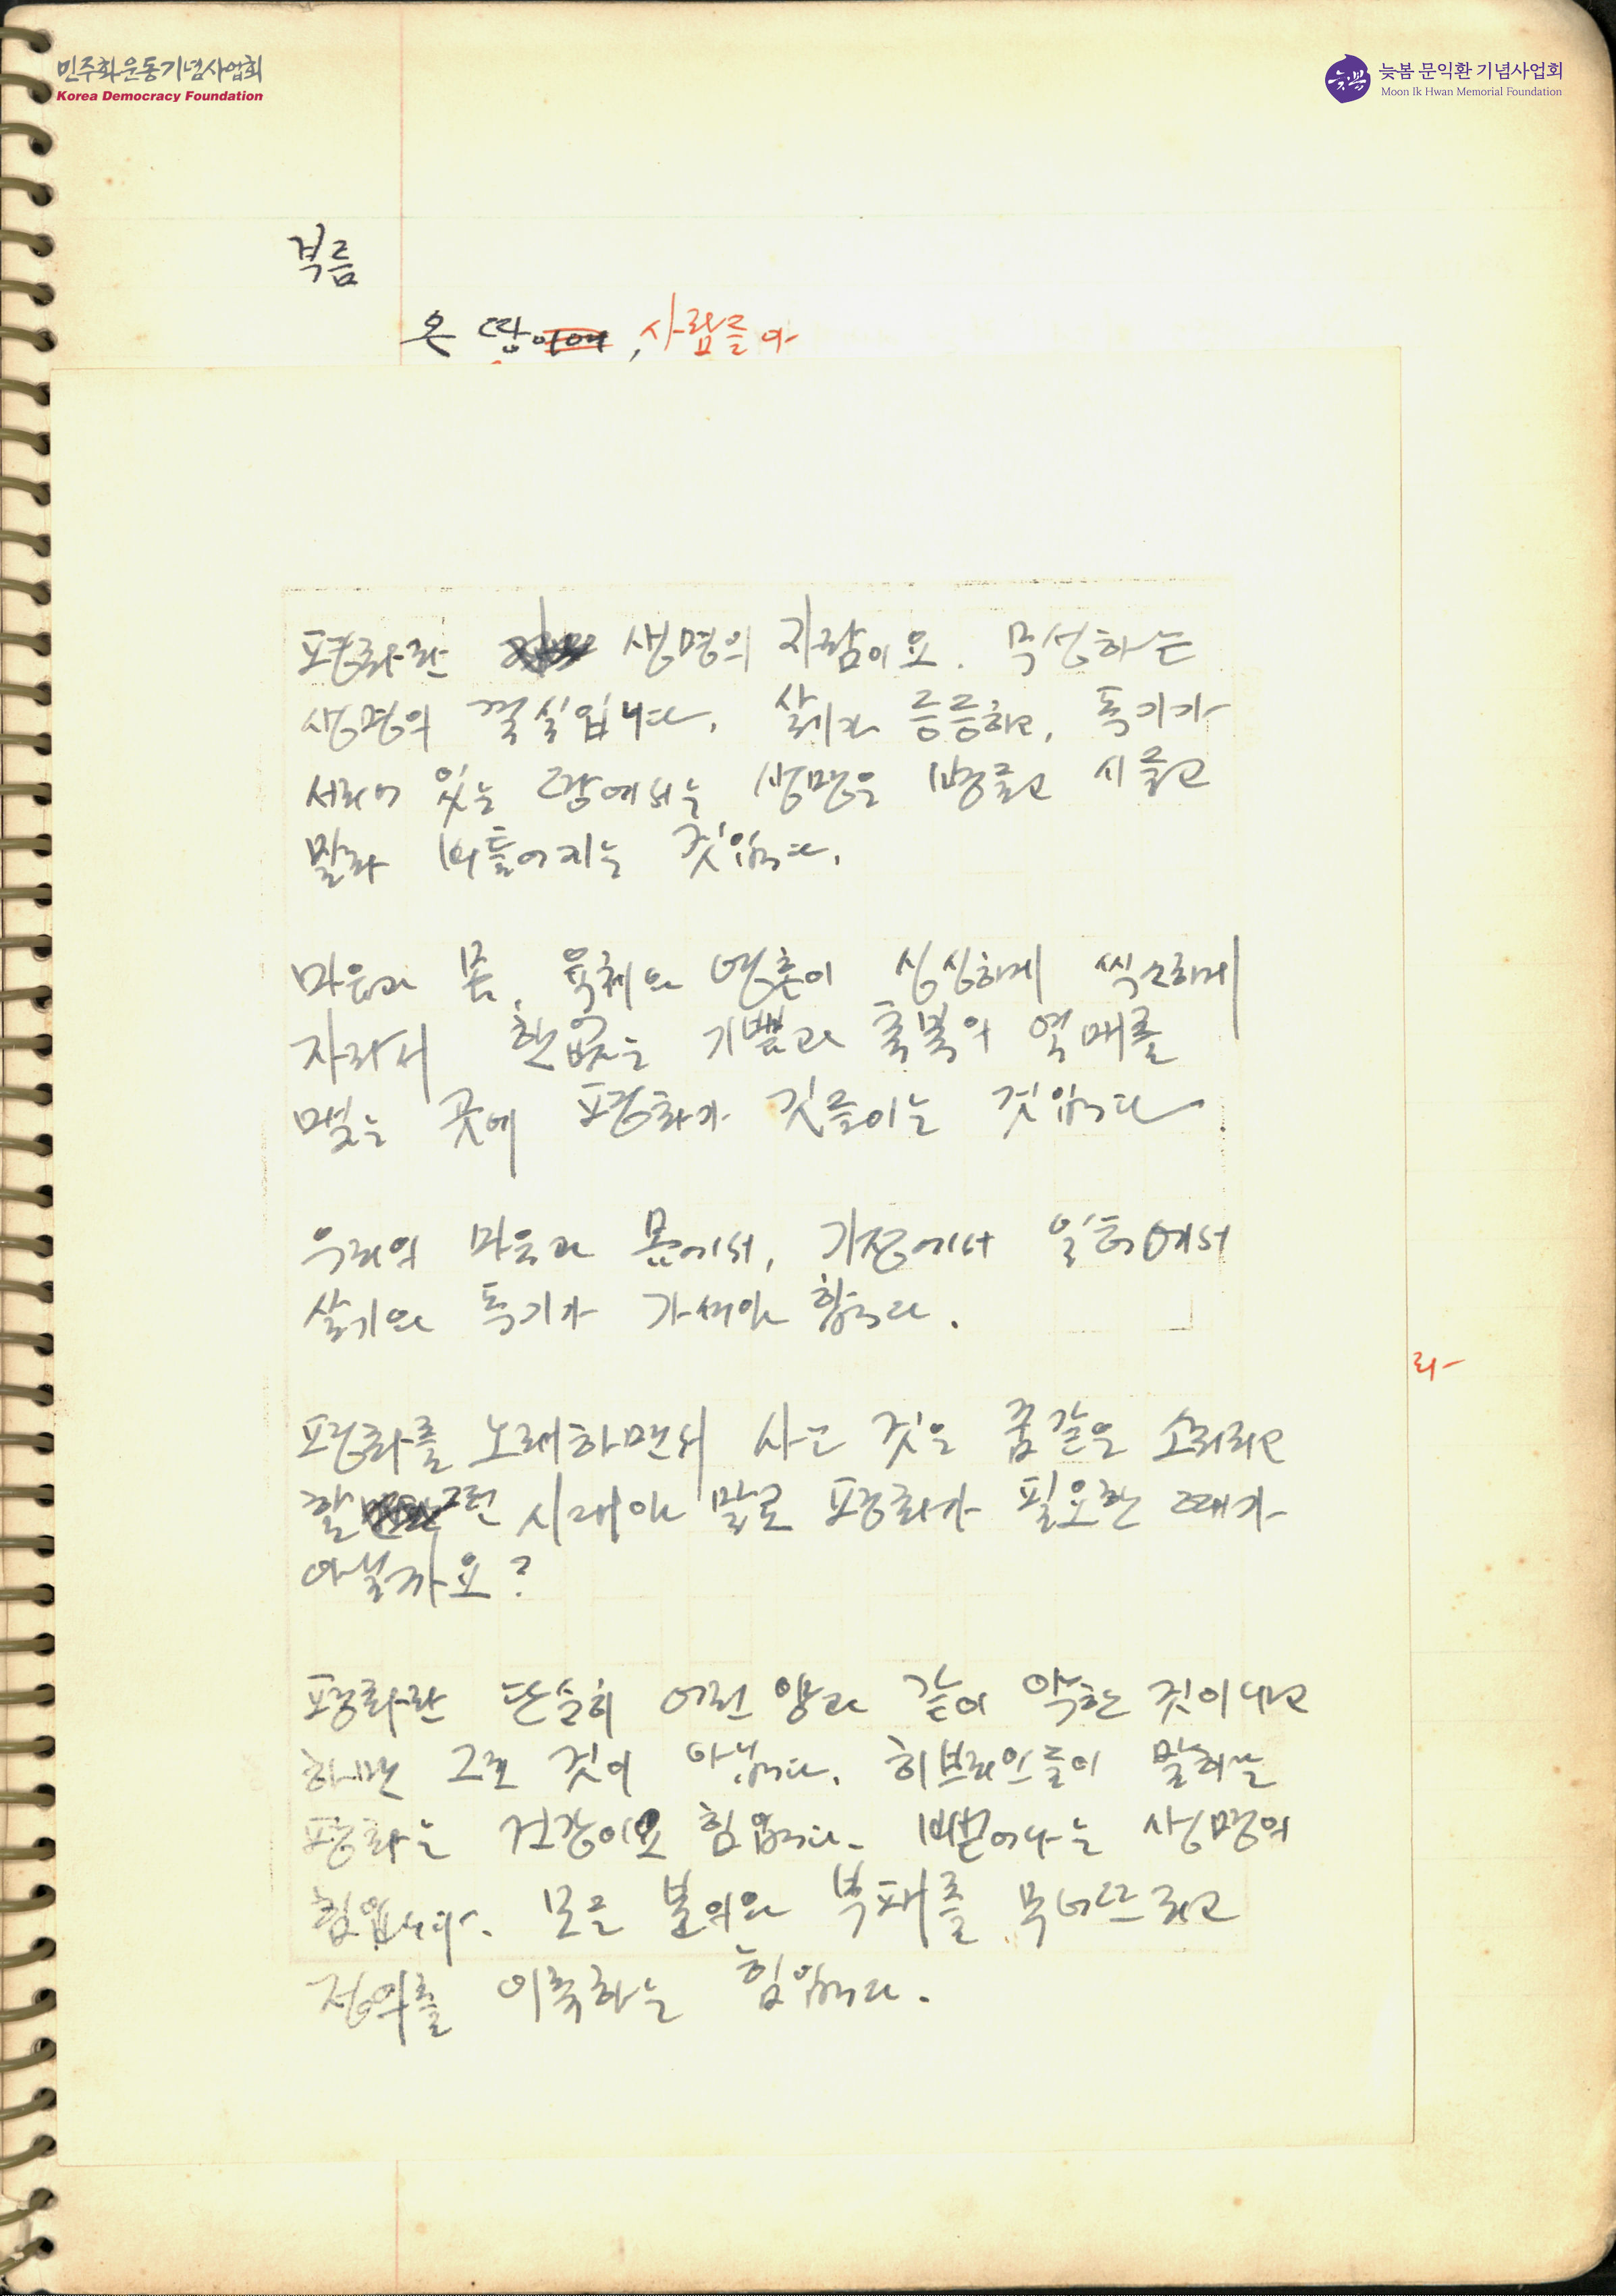 민주화운동기념사업회
Korea Democracy Foundation
늦봄 문익환 기념사업회
Moon Ik Hwan Memorial Foundation
늦봄
부름
온 땅이여, 사람들아
평화란 생명의 자람이요. 무성하는
생명의 결실입니다. 살기가 등등하고, 독기가
서리어 있는 땅에서는 생명은 병들고 시들고
말라 비틀어지는 것입니다.
마음과 몸, 육체와 영혼이 싱싱하게 씩소하게
자라서 한없는 기쁨과 축복의 열매를
맺는 곳에 평화가 깃들이는 것입니다.
우리의 마음과 몸에서, 가정에서 일터에서
살기와 독기가 가셔야 합니다.
평화를 노래하면서 사는 것은 꿈같은 소리라고
할 그런 시대야 말로 평화가 필요한 때가
아닐까요?
평화란 단순히 어린 양과 같이 약한 것이냐고
하면 그런 것이 아닙니다. 히브리인들이 말하는
평화는 건강이요 힘입니다. 뻗어나는 생명의
힘입니다. 모든 불의와 부패를 무너뜨리고
정의를 이룩하는 힘입니다.
라